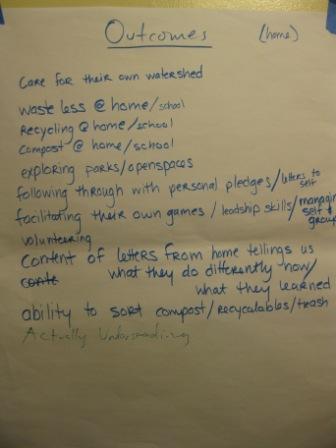 Outcomes (home)
Care for their own watershed
waste less @ home/school
Recycling @ home/school
Compost @ home/school
exploring parks/openspaces
following through with personal pledges/letters to self
facilitating their own games / leadship skills/managing self & group
volunteering
Content of letters from home tellings us
conte what they do differently now/
what they learned
ability to sort compost/recycalables/trash
Actually Understanding